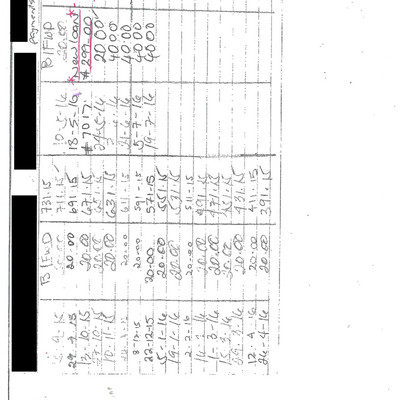 payments
B/FWD 731.15 B/FWD
20.00 711.15 10-5-16 20.00
29-9-15 20.00 691.15 18-5-16 *New loan*
13-10-15 20.00 671.15 #7017 $299.00
27-10-15 20.00 24-5-16 20 00
10-11-15 20.00 631.15 40 00
20.00 611.15 21-6-16 40.00
8-12-15 20.00 591.15 5-7-16 40 00
22-12-15 20.00 571.15 19-7-16 40 00
5-1-16 20.00 551.15
19-1-16 20.00
2-2-16 20.00 511.15
20.00 491.15
1-3-16 20.00 471.15
15-3-16 20.00
29-3-16 20.00 431.15
12-4-16 20.00 411.15
26-4-16 20.00 391.15